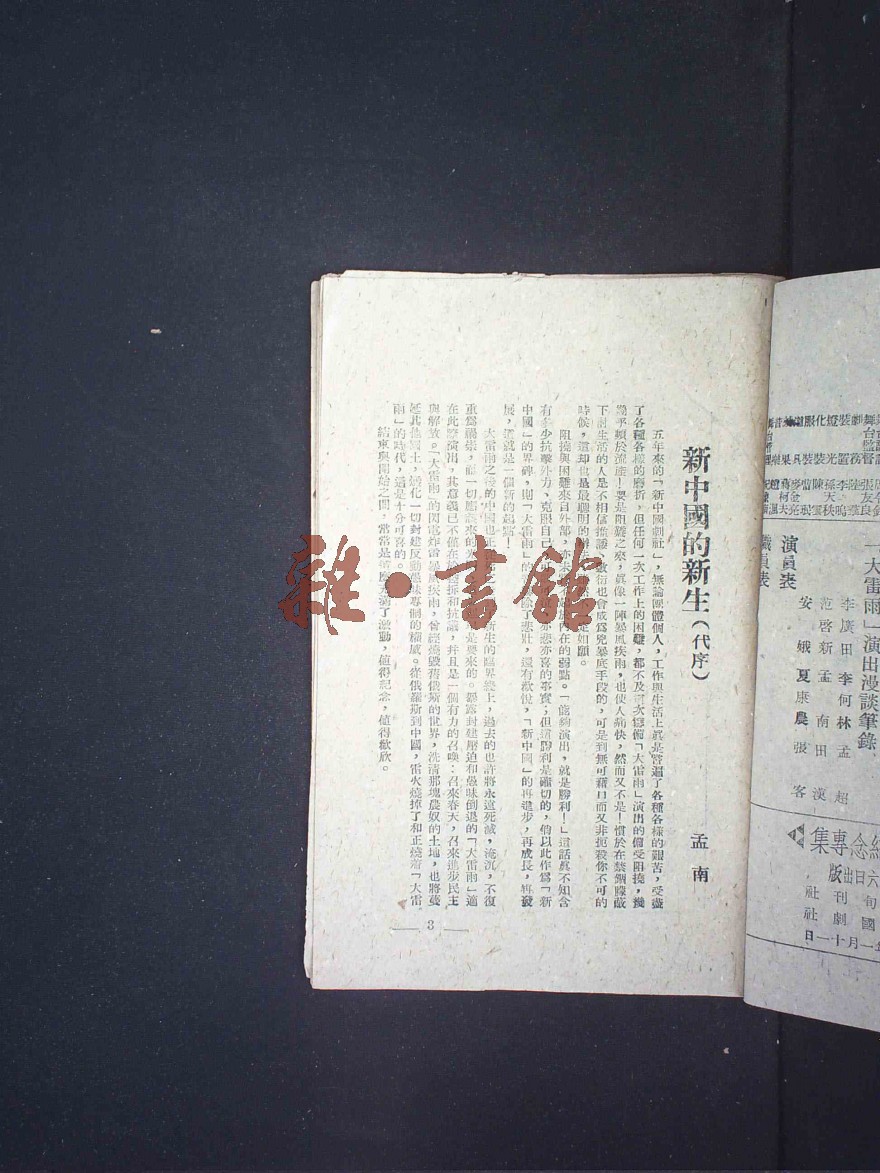 新中國的新生（代序）
孟南
五年來的「新中國劇社」，無論團體個人，工作與生活上眞是嘗遍了各種各樣的艱苦，受盡
了各種各樣的磨折，但任何一次工作上的困難，都不及這次籌備「大雷雨」演出的備受阻撓，幾
幾乎頻於流產！要是阻難之來，眞像一陣暴風疾雨，也使人痛快，然而又不是！慣於在禁錮矇蔽
下討生活的人是不相信
敷衍也會成爲兇暴底手段的，可是到無可藉口而又非扼殺你不可的
時候，這却也是最聰明的辦
是如願。
阻撓與困難來自外部，亦未
內在的弱點。「能夠演出，就是勝利！」這話眞不知含
有多少抗擊外力，克服自己
亦悲亦喜的事實；但這勝利是確切的，倘以此作爲「新
中國」的界碑，則「大雷雨」的
除了悲壯，還有歡悅，「新中國」的再進步，再成長，再發
展，這就是一個新的起點！
大雷雨之後的中國也正
新生的臨界綫上，過去的也許將永遠死滅，淹沉，不復
重爲禍祟，而一切應該來的
是要來的。暴露封建壓迫和愚昧倒退的「大雷雨」適
在此際演出，其意義已不僅在
和抗議，并且是一個有力的召喚：召來春天，召來進步民主
與解放。「大雷雨」的閃電炸雷暴風疾雨，曾經燒毀舊俄斯的世界，洗清那塊農奴的土地，也將蔓
延其他國土，焚化一切封建反動愚昧專制的權威。從俄羅斯到中國，雷火燒掉了和正燒着「大雷
雨」的時代，這是十分可喜的。
結束與開始之間，常常是
充滿了激動，值得紀念，值得歡欣。
— 3 —
「大雷雨」演出漫談筆錄
演員表
職員表
李廣田 李何林 孟超
范啓新 孟南 田漢
安娥 夏康農 張客
紀念專集
六日出版
旬刊社
國劇社
年一月十一日
雜·書館